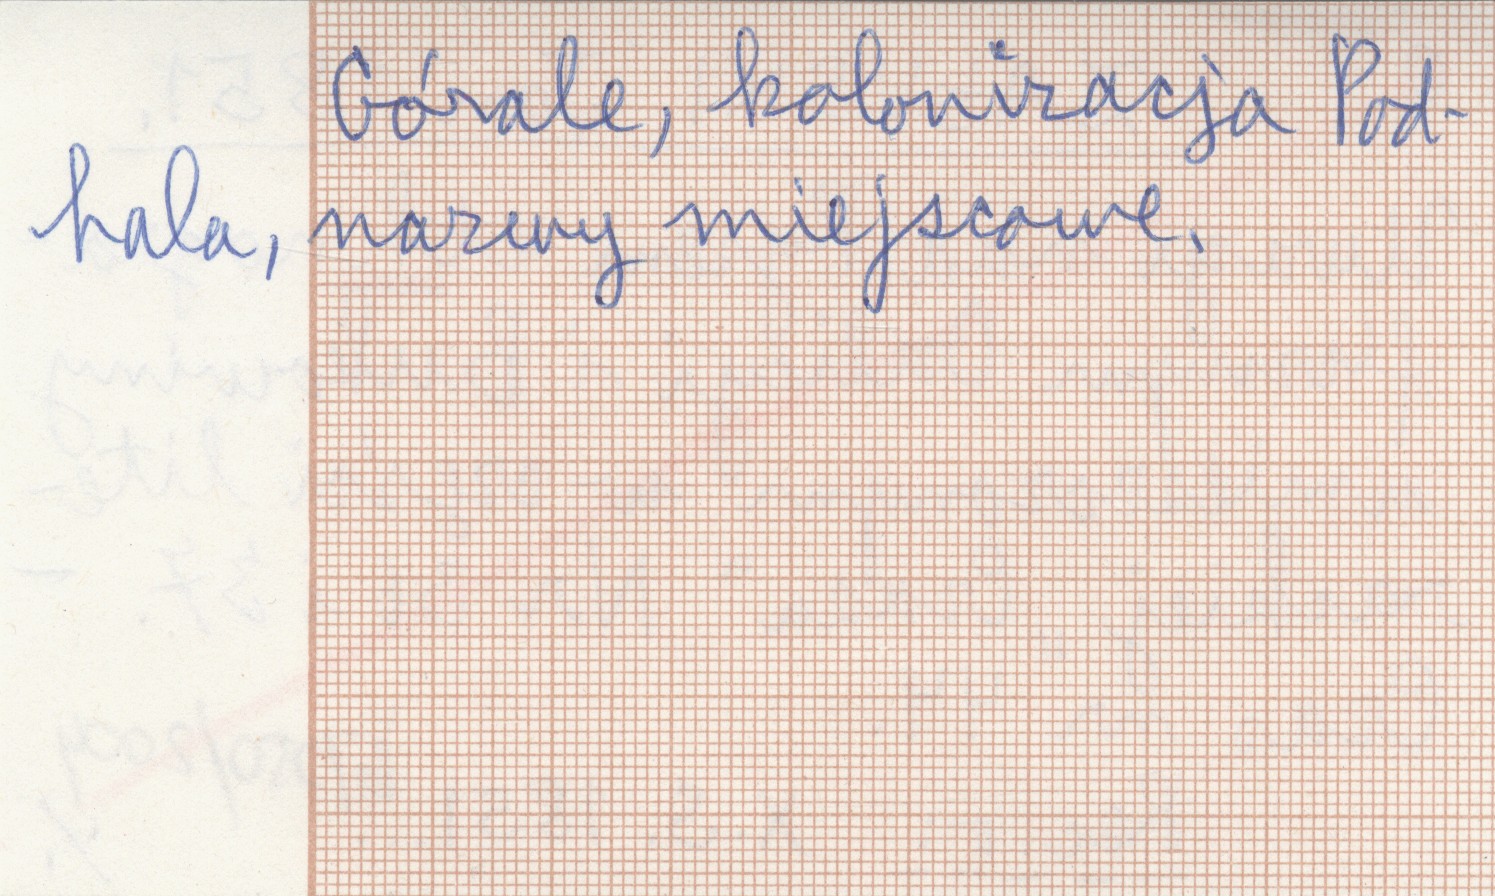 Górale, kolonizacja Pod-
hala, nazwy miejscowe.